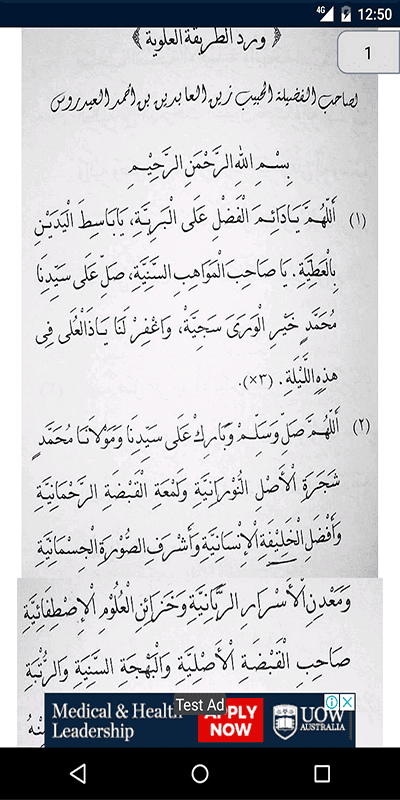 12:50
4G
﴿ ورد الطريقة العلوية ﴾
1
لصاحب الفضيلة الحبيب زين العابدين بن أحمد العيدروس
بِسْمِ اللهِ الرَّحْمَنِ الرَّحِيْمِ
(١) أَللَّهُمَّ يَادَائِمَ الْفَضْلِ عَلَى الْبَرِيَّةِ، يَابَاسِطَ الْيَدَيْنِ
بِالْعَطِيَّةِ. يَا صَاحِبَ الْمَوَاهِبِ السَّنِيَّةِ، صَلِّ عَلَى سَيِّدِنَا
مُحَمَّدٍ خَيْرِ الْوَرَى سَجِيَّةْ، وَاغْفِرْ لَنَا يَاذَالْعُلَى فِى
هذِهِ اللَّيْلَةِ. (٣×).
(٢) أَللَّهُمَّ صَلِّ وَسَلِّمْ وَبَارِكْ عَلَى سَيِّدِنَا وَمَوْلَانَا مُحَمَّدٍ
شَجَرَةِ الْأَصْلِ النُّوْرَانِيَّةِ وَلَمْعَةِ الْقَبْضَةِ الرَّحْمَانِيَّةِ
وَأَفْضَلِ الْخَلِيْفَةِ الْإِنْسَانِيَّةِ وَأَشْرَفِ الصُّوْرَةِ الْجِسْمَانِيَّةِ
وَمَعْدِنِ الْأَسْرَارِ الرَّبَّانِيَّةِ وَخَزَائِنِ الْعُلُوْمِ الْإِصْطِفَائِيَّةِ
صَاحِبِ الْقَبْضَةِ الْأَصْلِيَّةِ وَالْبَهْجَةِ السَّنِيَّةِ وَالرُّتْبَةِ
Test Ad
Medical & Health
Leadership
APPLY
NOW
UOW
AUSTRALIA